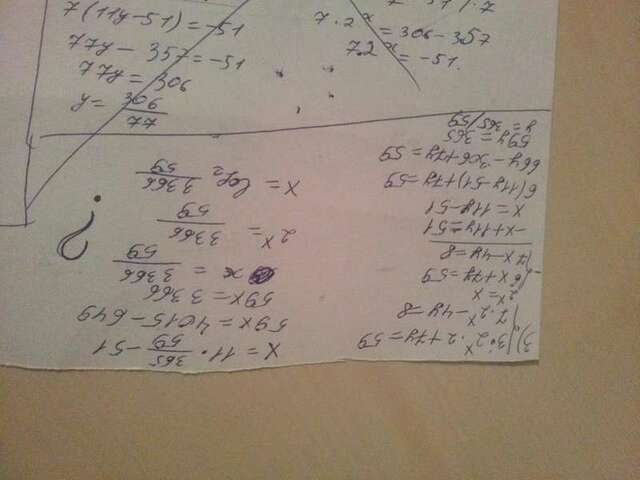 7(11y-51)=-51
77y-357=-51
77y=306
y=306/77
7·2^x=306-357
72^x=-51.
3) 3·2^x·2+7y=59
7·2^x-4y=8
2^x=x
6x+7y=59
7x-4y=8
-x+11y=51
x=11y-51
6(11y-51)+7y=59
66y-306+7y=59
59y=365
y=365/59
x=11·365/59-51
59x=4015-649
59x=3366
x=3366/59
2^x=3366/59
x=log₂ 3366/59
?